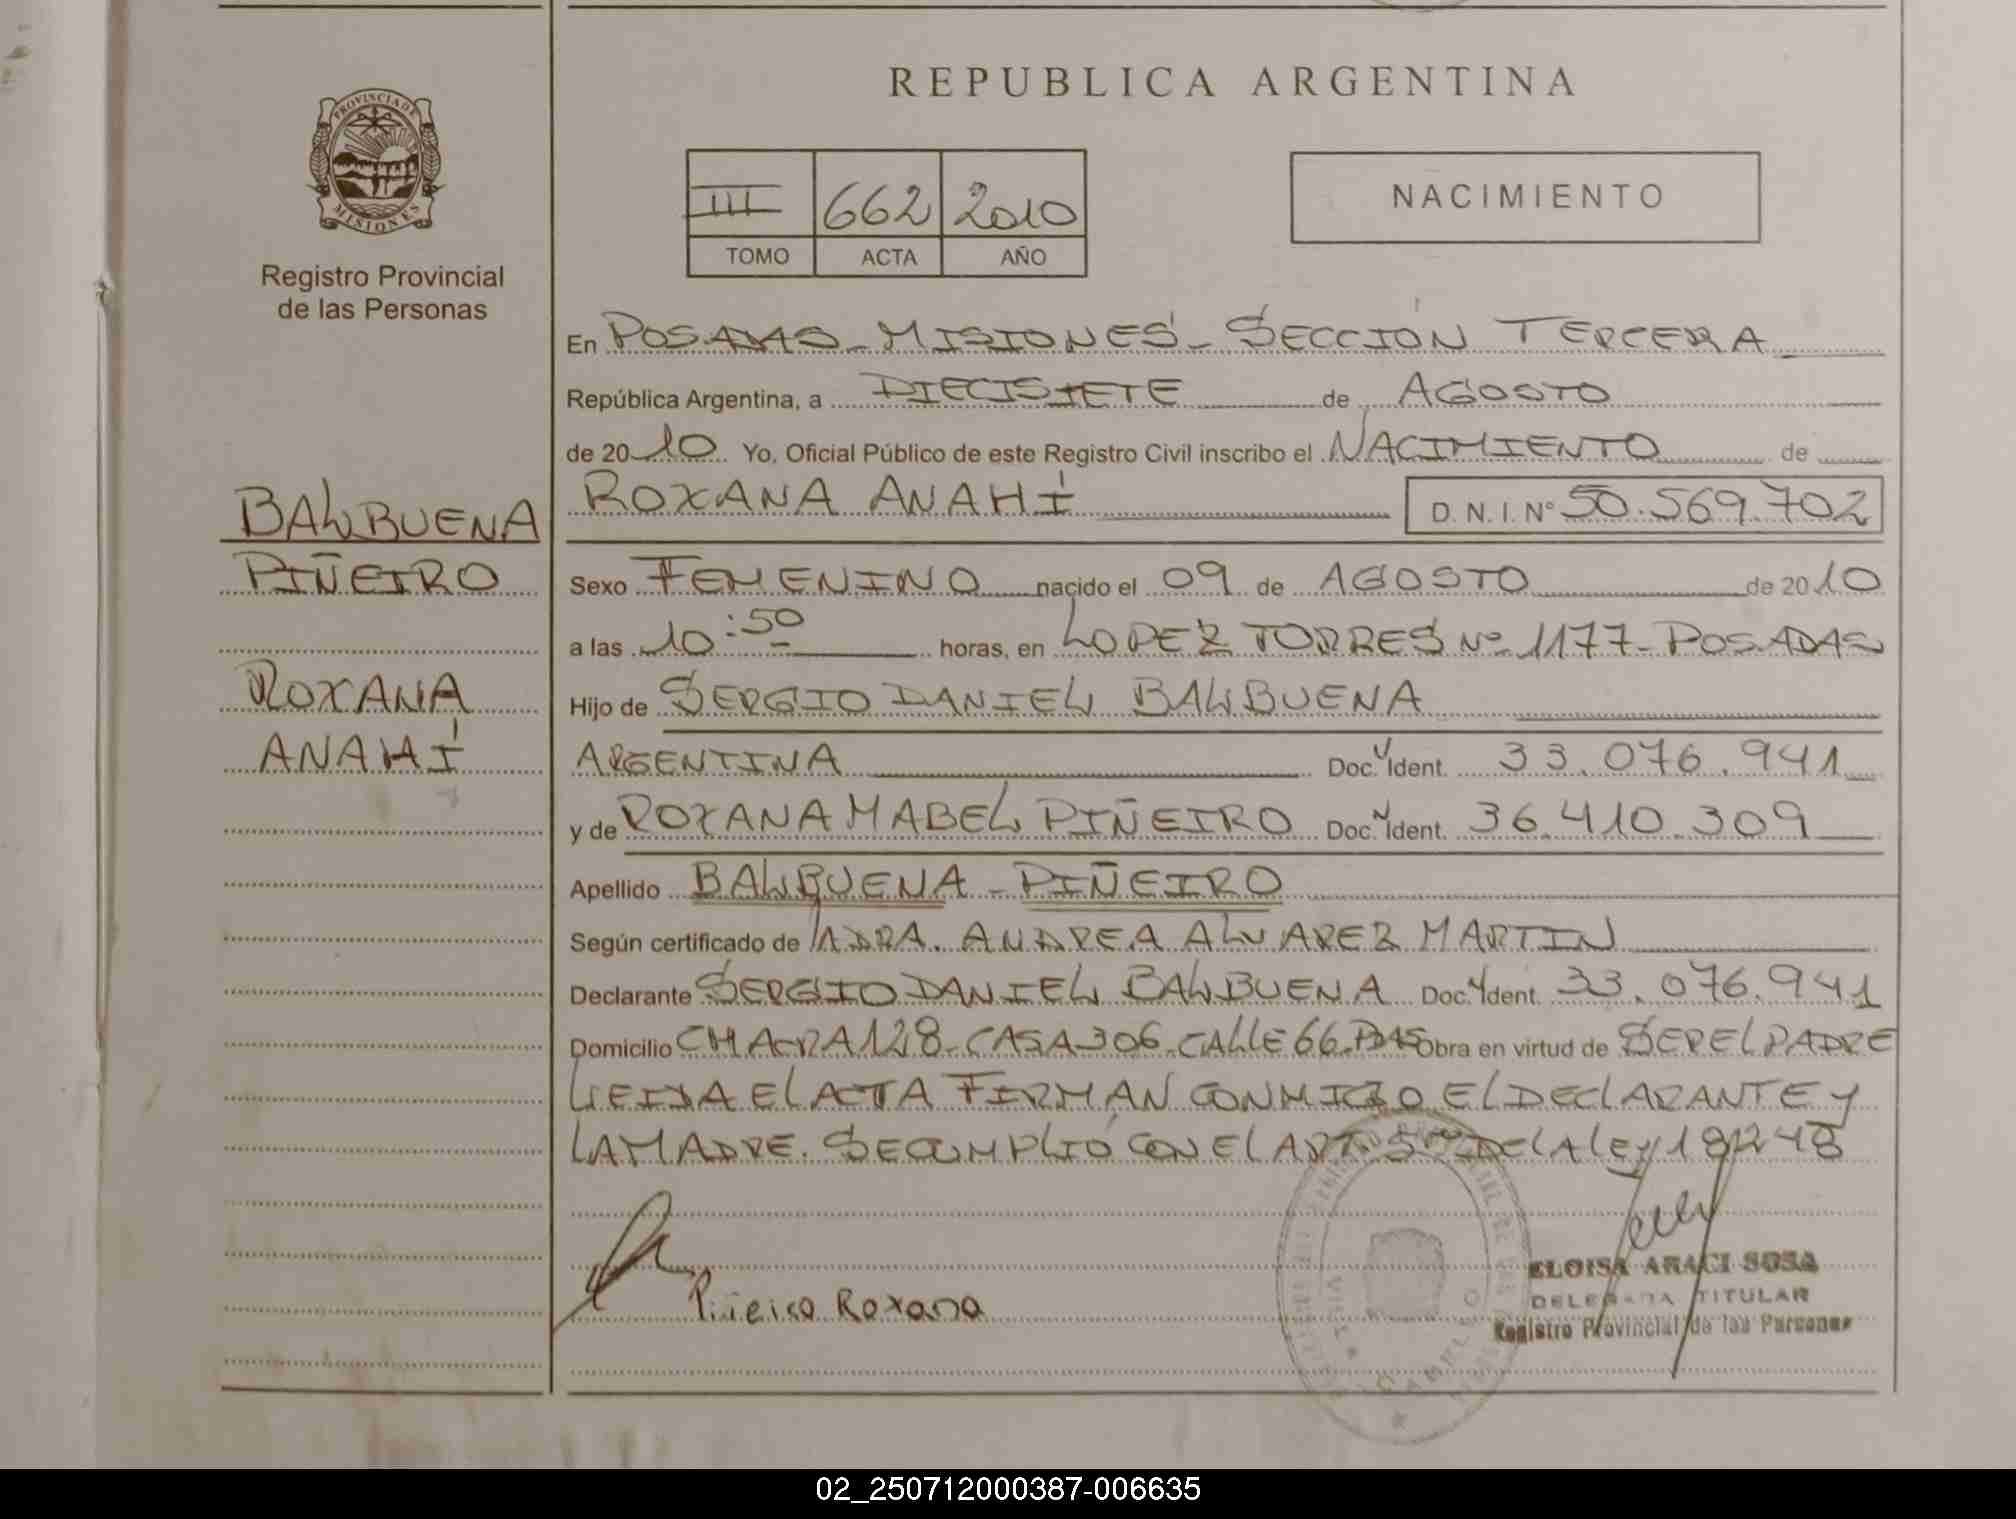 REPUBLICA ARGENTINA
PROVINCIA DE MISIONES
Registro Provincial
de las Personas
III 662 2010
TOMO ACTA AÑO
NACIMIENTO
En POSADAS - MISIONES - SECCIÓN TERCERA
República Argentina, a DIECISIETE de AGOSTO
de 2010 Yo, Oficial Público de este Registro Civil inscribo el NACIMIENTO de
ROXANA ANAHÍ D. N. I. Nº 50.569.702
BALBUENA
PIÑEIRO
ROXANA
ANAHÍ
Sexo FEMENINO nacido el 09 de AGOSTO de 2010
a las 10:50 horas, en LOPEZ TORRES Nº 1177 - POSADAS
Hijo de SERGIO DANIEL BALBUENA
ARGENTINA Doc. Ident. 33.076.941
y de ROXANA MABEL PIÑEIRO Doc. Ident. 36.410.309
Apellido BALBUENA - PIÑEIRO
Según certificado de ANDREA ALVAREZ MARTIN
Declarante SERGIO DANIEL BALBUENA Doc. Ident. 33.076.941
Domicilio CHACRA 128 - CASA 306 - CALLE 66 - PDAS Obra en virtud de SER EL PADRE
LEIDA EL ACTA FIRMAN CONMIGO EL DECLARANTE Y
LA MADRE. SE CUMPLIÓ CON EL ART. 5º DE LA LEY 18248
Piñeiro Roxana
ELOISA ARACI SOSA
DELEGADA TITULAR
Registro Provincial de las Personas
02_250712000387-006635